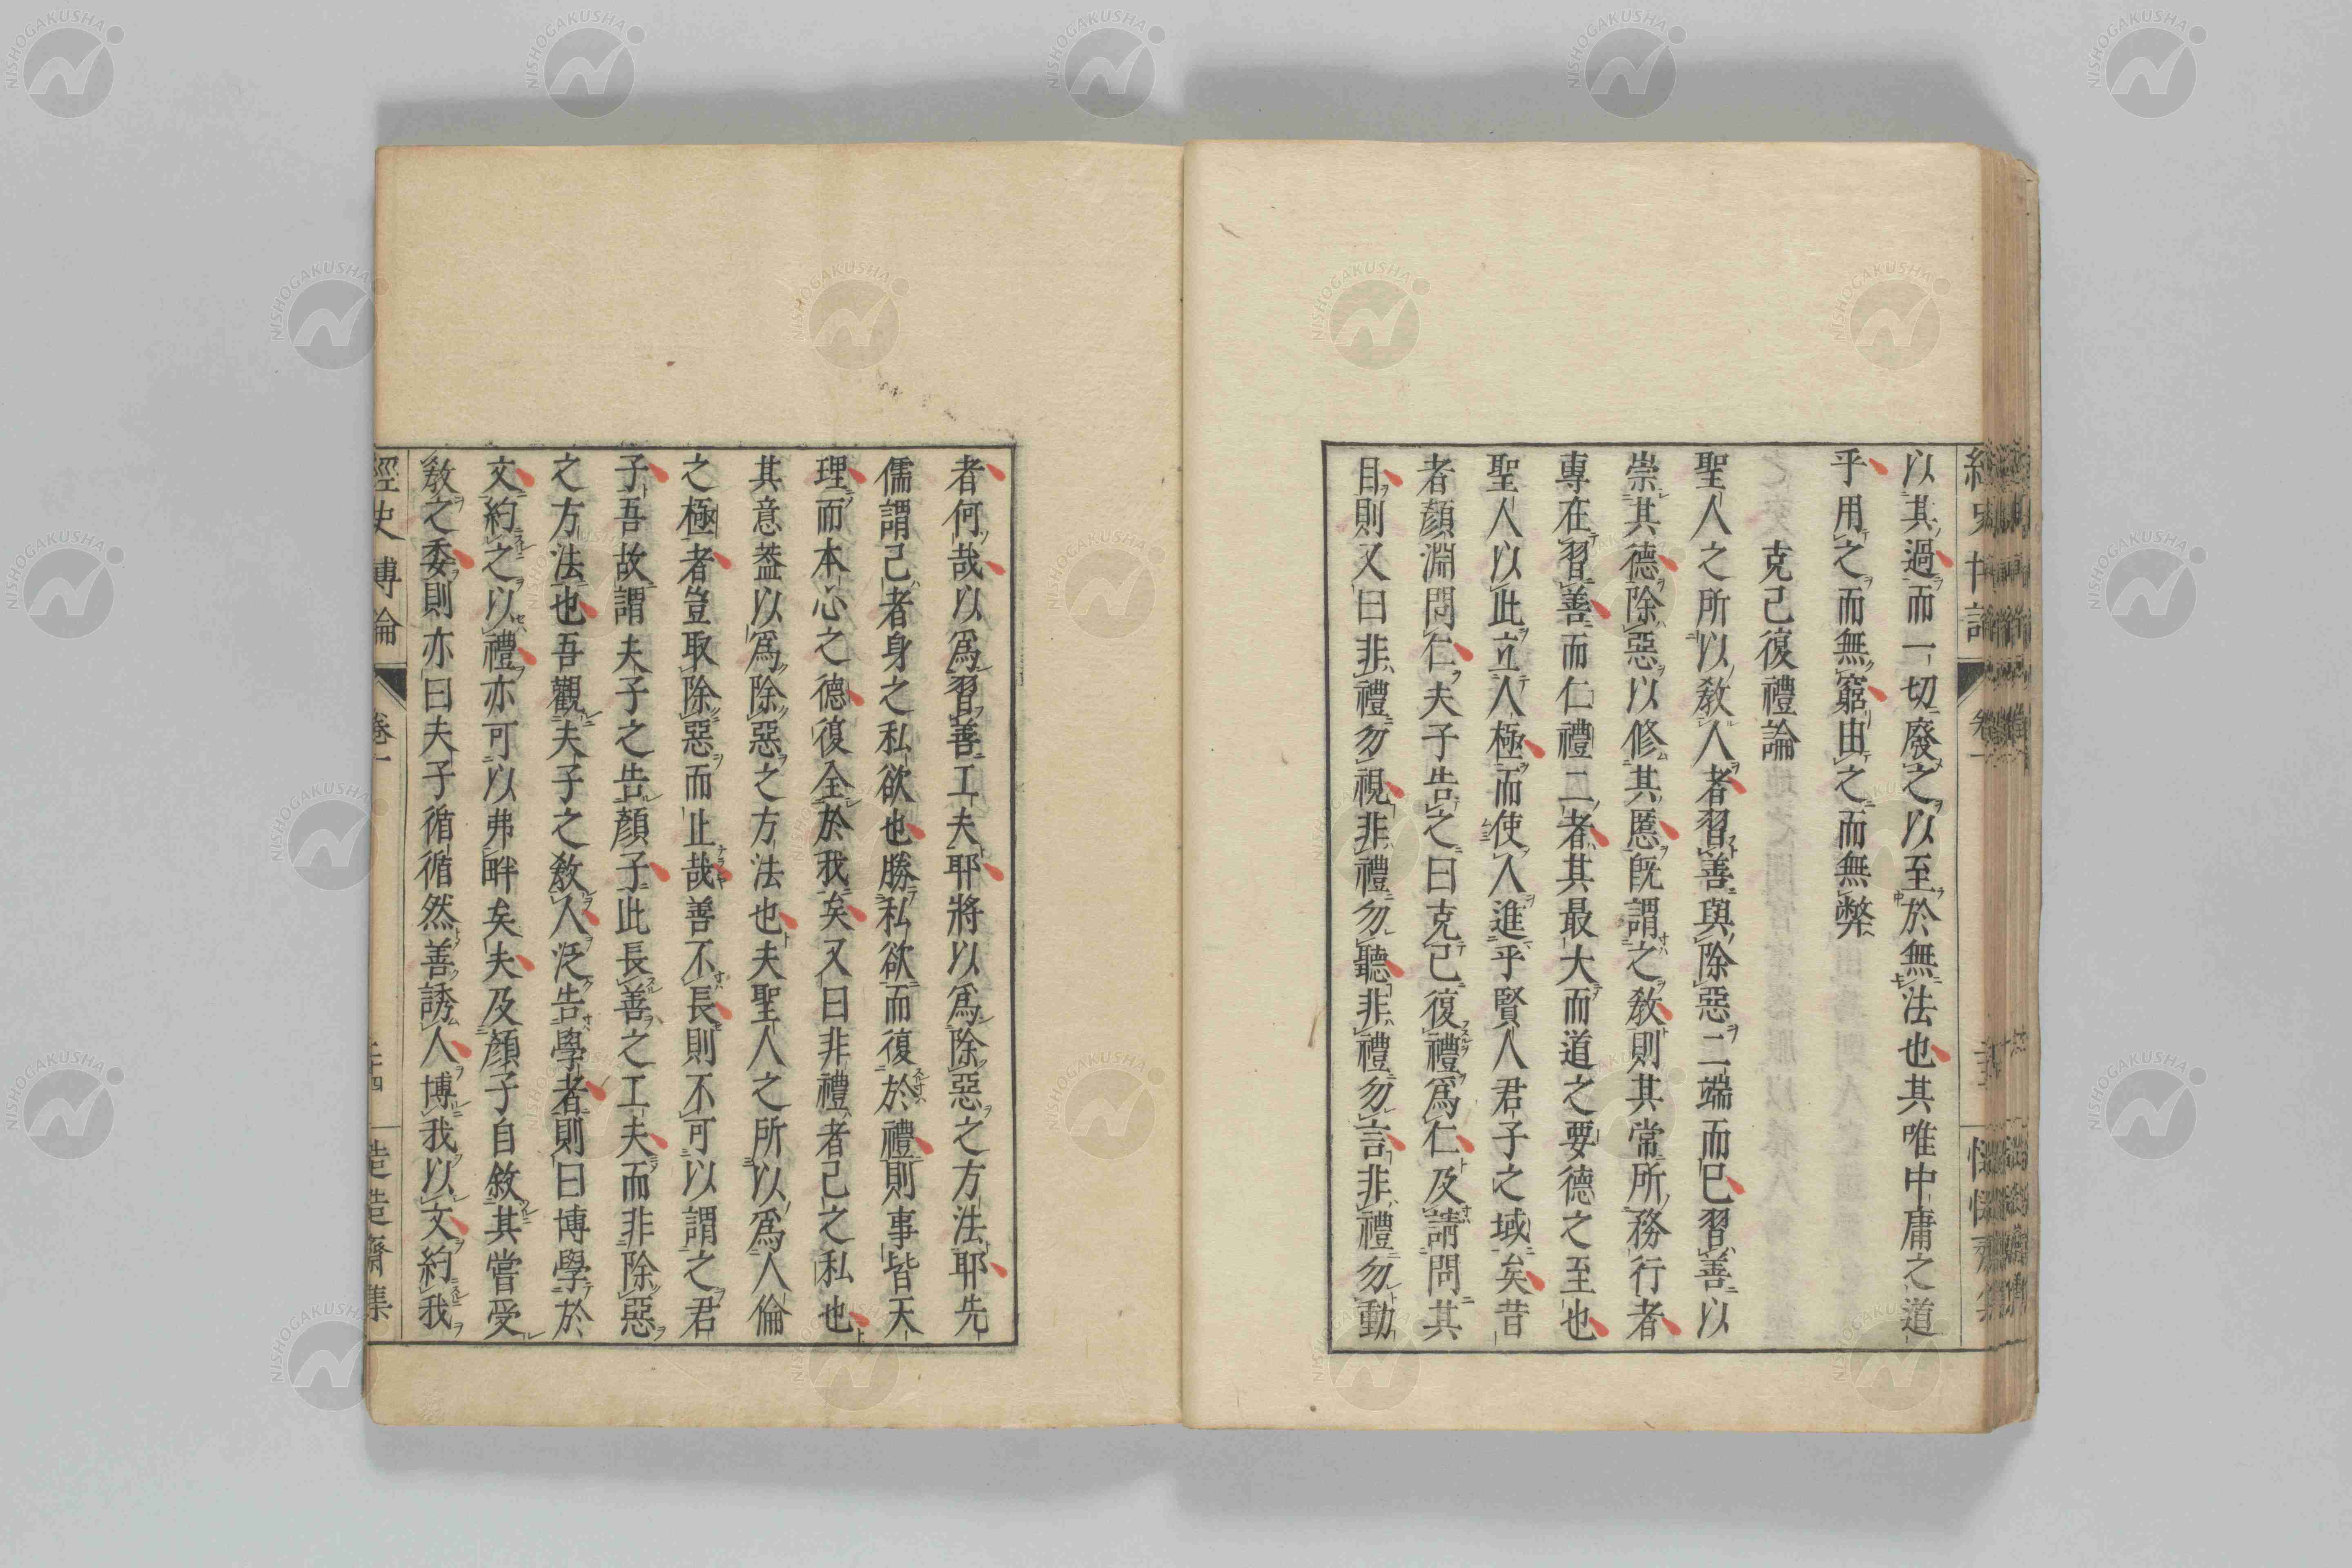 以其過而一切廢之以至於無法也其唯中庸之道
乎用之而無窮由之而無弊
克己復禮論
聖人之所以敎人者習善與除惡二端而已習善以
崇其德除惡以修其慝旣謂之敎則其常所務行者
專在習善而仁禮二者其最大而道之要德之至也
聖人以此立人極而使人進乎賢人君子之域矣昔
者顏淵問仁夫子告之曰克己復禮爲仁及請問其
目則又曰非禮勿視非禮勿聽非禮勿言非禮勿動
者何哉以爲習善工夫耶將以爲除惡之方法耶先
儒謂己者身之私欲也勝私欲而復於禮則事皆天
理而本心之德復全於我矣又曰非禮者己之私也
其意葢以爲除惡之方法也夫聖人之所以爲人倫
之極者豈取除惡而止哉善不長則不可以謂之君
子吾故謂夫子之告顏子此長善之工夫而非除惡
之方法也吾觀夫子之敎人泛告學者則曰博學於
文約之以禮亦可以弗畔矣夫及顏子自敘其嘗受
敎之委則亦曰夫子循循然善誘人博我以文約我
經史博論 卷一
NISHOGAKUSHA